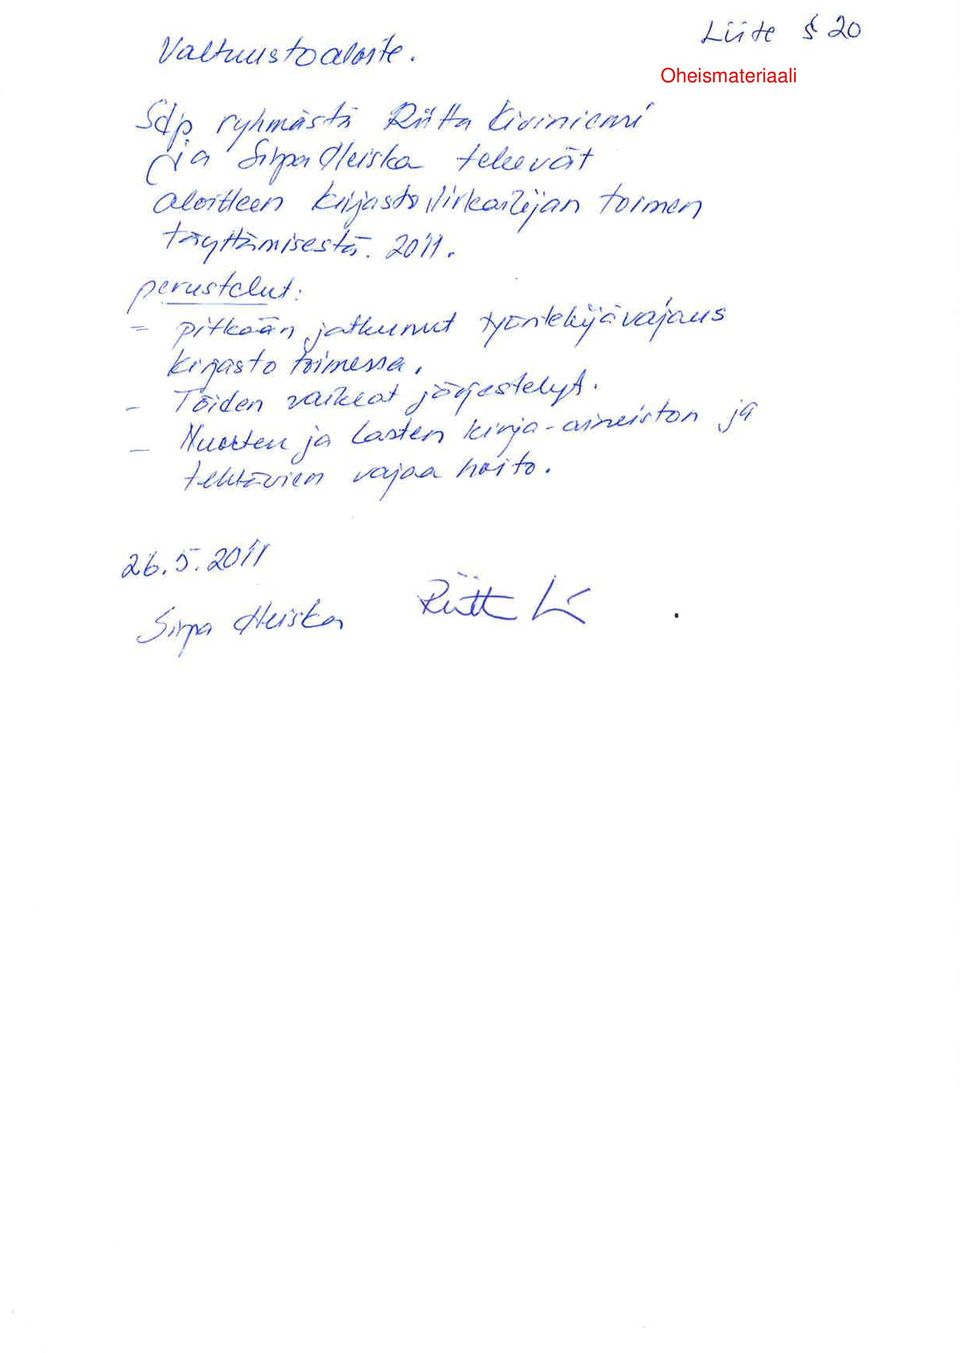 Liite § 20
Valtuustoaloite.
Oheismateriaali
Sdp. ryhmästä Riitta Kiviniemi
ja Sirpa Heiska tekevät
aloitteen kirjastovirkailijan toimen
täyttämisestä. 2011.
perustelut:
- pitkään jatkunut työntekijävajaus
kirjasto toimessa,
- Töiden vaikeat järjestelyt.
- Nuorten ja lasten kirja-aineiston ja
tehtävien vajaa hoito.
26.5.2011
Sirpa Heiska Riitta K